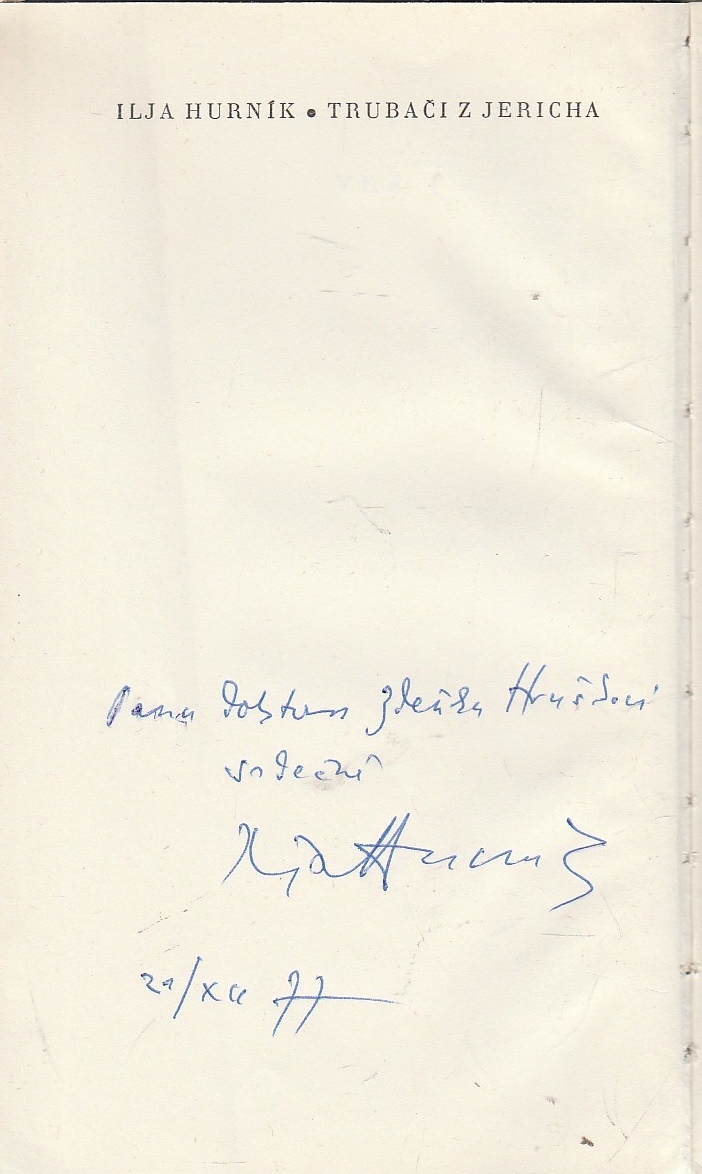 ILJA HURNÍK • TRUBAČI Z JERICHA
Panu doktoru Zdeňku
srdečně
Ilja Hurník
21/XII 77